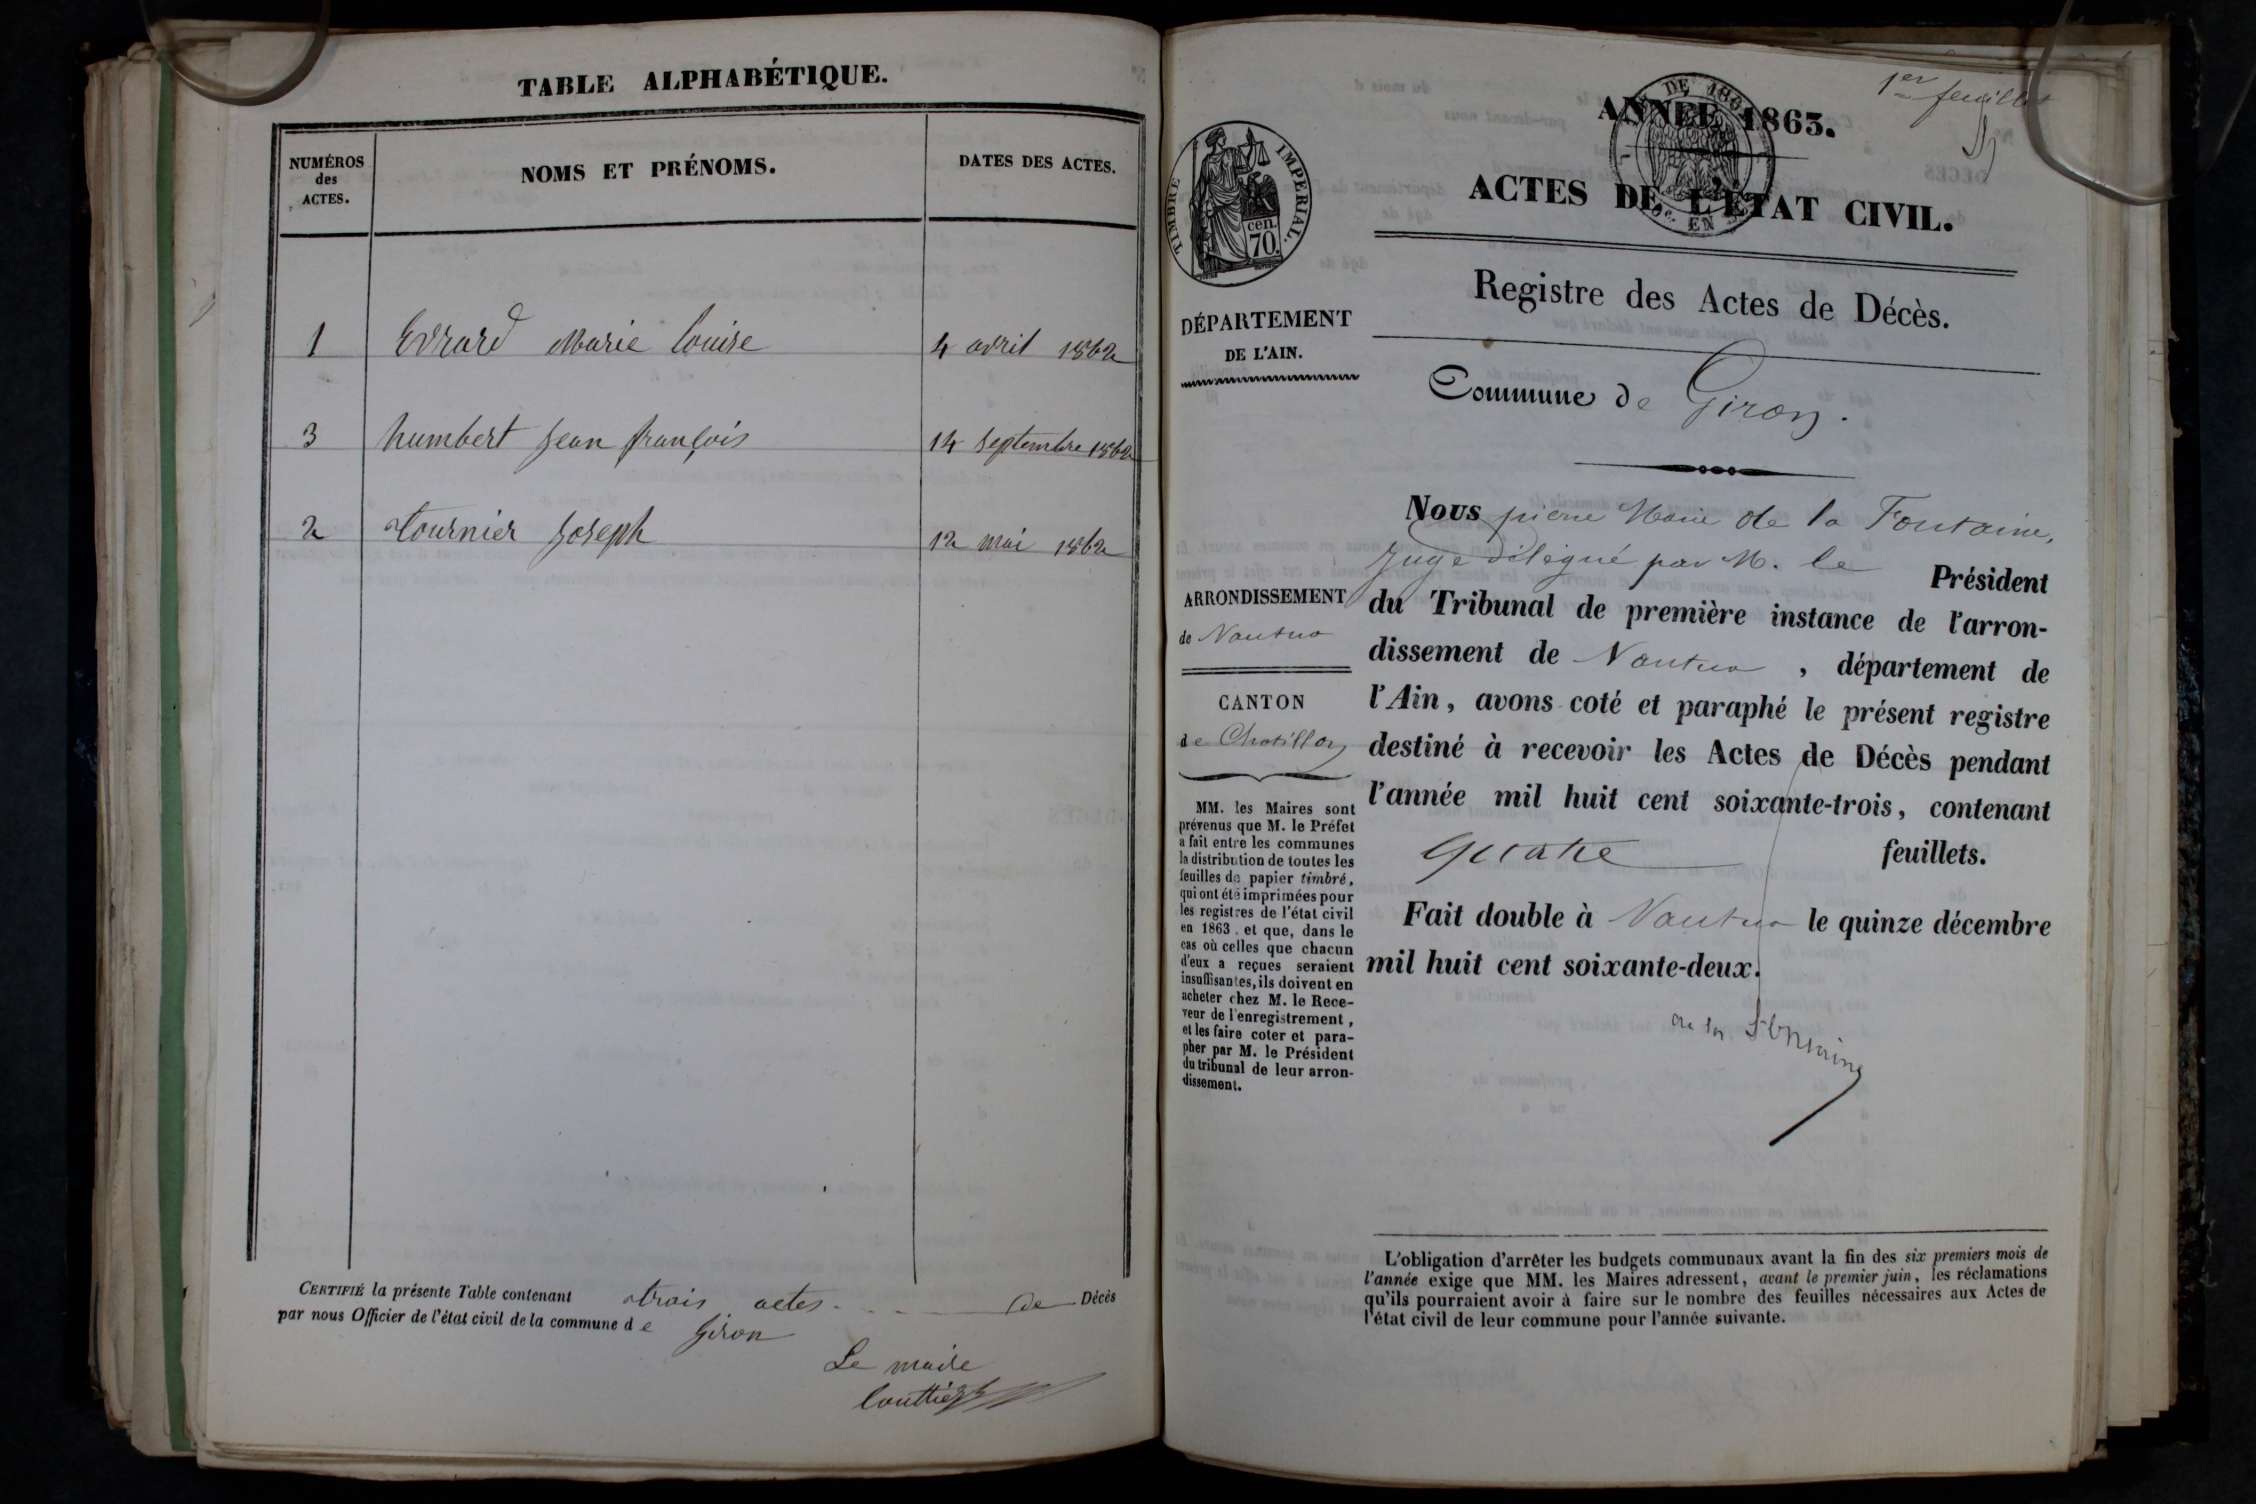 TABLE ALPHABÉTIQUE.
NUMÉROS
des
ACTES.
NOMS ET PRÉNOMS.
DATES DES ACTES.
1 Evrard Marie Louise 4 avril 1862
3 humbert jean françois 14 septembre 1862
2 tournier joseph 12 mai 1862
CERTIFIÉ la présente Table contenant trois actes de Décès
par nous Officier de l'état civil de la commune de Giron
Le maire
1er feuillet
ANNÉE 1863.
ACTES DE L'ÉTAT CIVIL.
TIMBRE IMPERIAL.
cen.
70.
DE 186
EN
Registre des Actes de Décès.
DÉPARTEMENT
DE L'AIN.
Commune de Giron.
ARRONDISSEMENT
de Nantua
CANTON
de Chatillon
MM. les Maires sont
prévenus que M. le Préfet
a fait entre les communes
la distribution de toutes les
feuilles de papier timbré,
qui ont été imprimées pour
les registres de l'état civil
en 1863, et que, dans le
cas où celles que chacun
d'eux a reçues seraient
insuffisantes, ils doivent en
acheter chez M. le Rece-
veur de l'enregistrement,
et les faire coter et para-
pher par M. le Président
du tribunal de leur arron-
dissement.
Nous pierre Marie de la Fontaine,
Juge délégué par M. le Président
du Tribunal de première instance de l'arron-
dissement de Nantua, département de
l'Ain, avons coté et paraphé le présent registre
destiné à recevoir les Actes de Décès pendant
l'année mil huit cent soixante-trois, contenant
quatre feuillets.
Fait double à Nantua le quinze décembre
mil huit cent soixante-deux.
de la Fontaine
L'obligation d'arrêter les budgets communaux avant la fin des six premiers mois de
l'année exige que MM. les Maires adressent, avant le premier juin, les réclamations
qu'ils pourraient avoir à faire sur le nombre des feuilles nécessaires aux Actes de
l'état civil de leur commune pour l'année suivante.